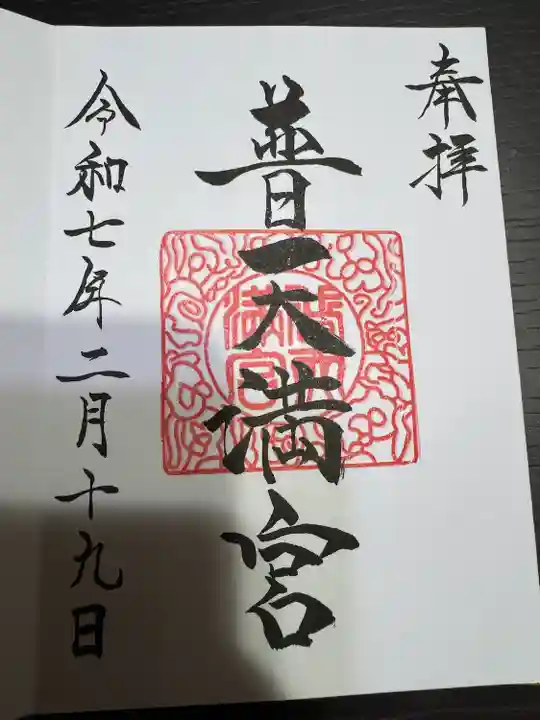 奉拝
普天満宮
令和七年二月十九日